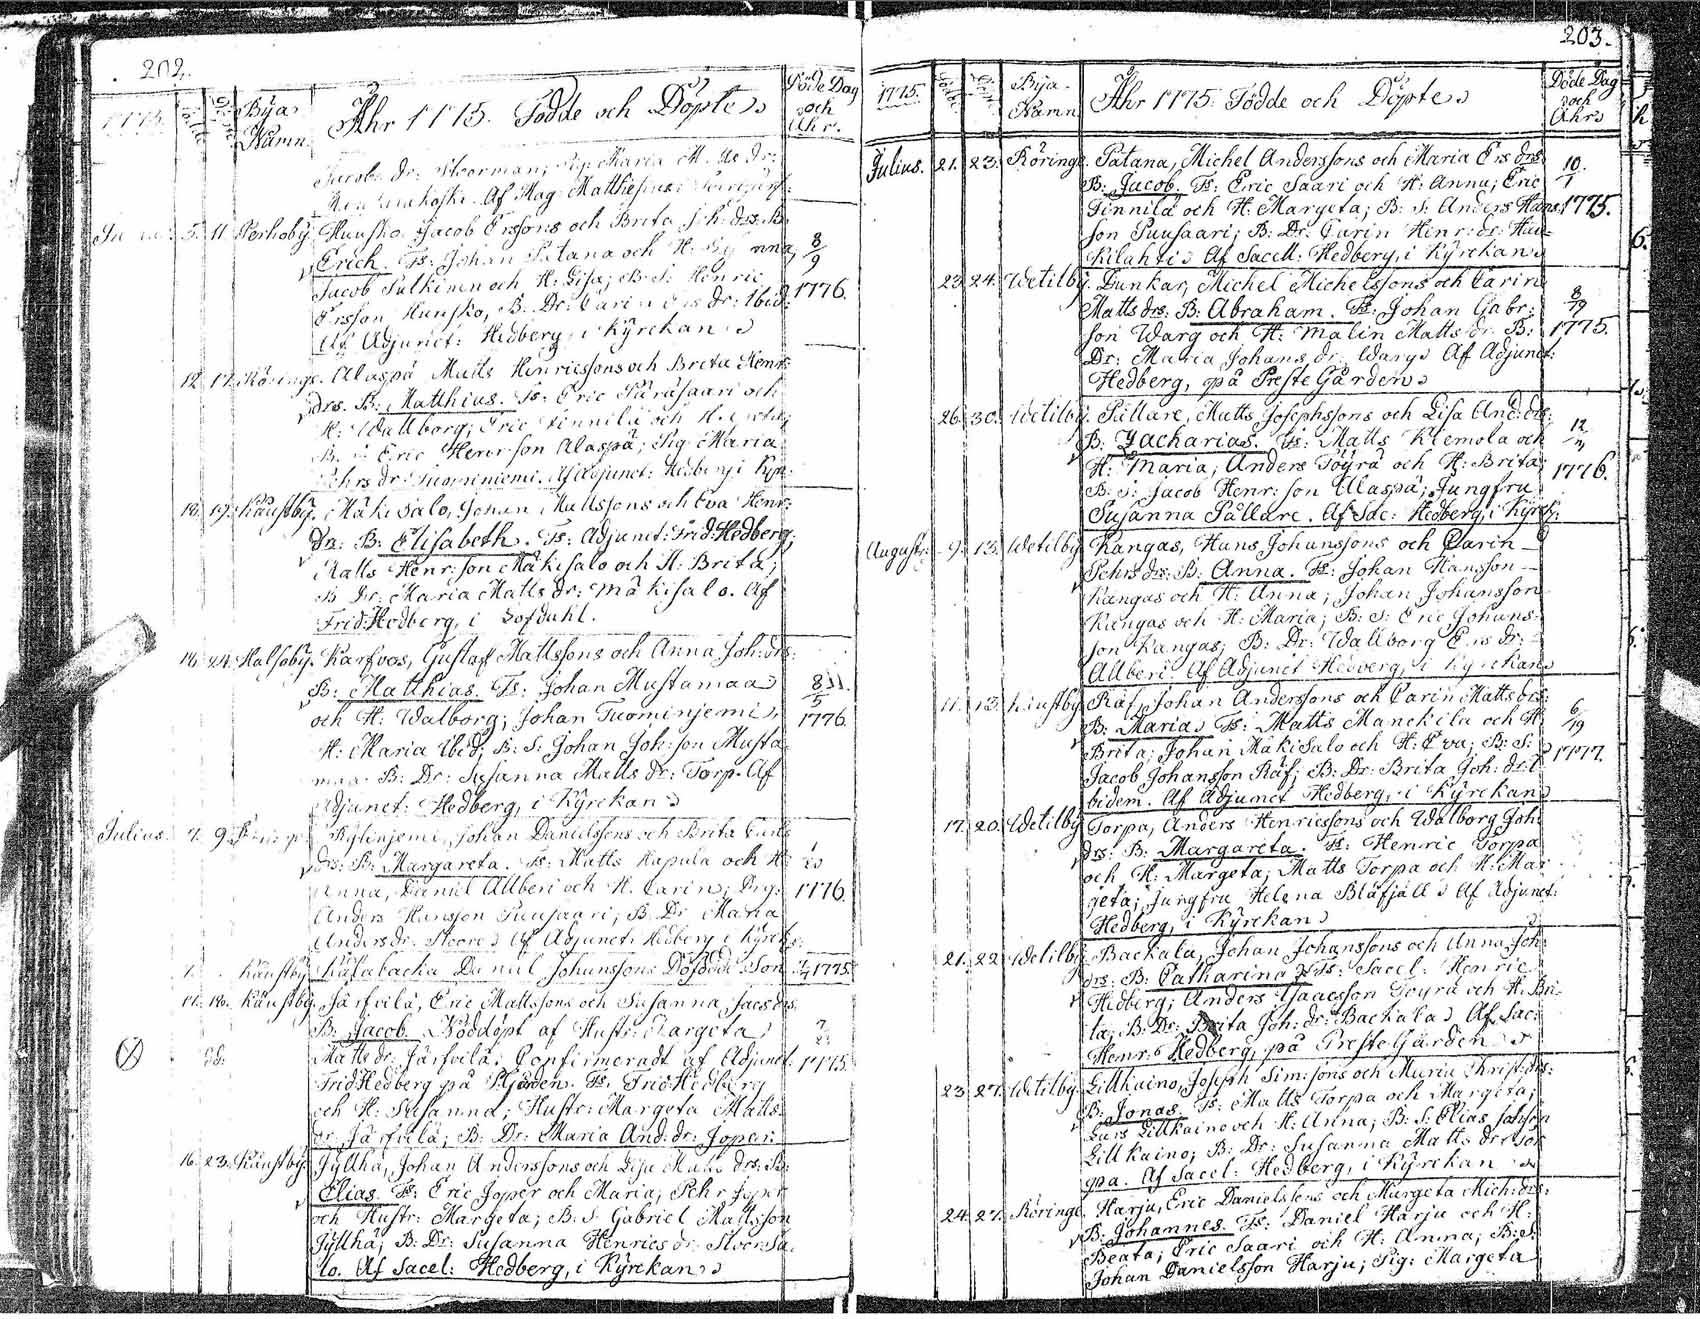 202.
1775.
Bÿa
Namn
Åhr 1775. Födde och Döpte
Döde Dag
och
Åhr.
Jacobs dr: Stoorman; Sig: Maria M. ds dr:
Af Mag Matthesius
5. 11 Perhoby Huusko Jacob Erssons och Brita Joh: drs: B:
Erich. Fs: Johan Patana och H:
8/9
Jacob Pulkinen och H: Lisa; B: S: Henric
1776.
Ersson Huusko, B: Dr: Carin Ers dr: Ibid:
Af Adjunct: Hedberg, i Kÿrckan
12 17 Röringe. Alaspä Matts Henricssons och Brita Henr:
drs. B: Matthias. Fs: Eric Päräsaari och
H: Wallborg; Eric Finnilä och H:
B: S: Eric Henr: son Alaspä; Sig: Maria
Pehrs dr: Tuominiemi. Af Adjunct: Hedberg i Kyrk:
18. 19. Käustbÿ. Mäkisalo, Johan Mattssons och Eva Henr:
drs: B: Elisabeth. Fs: Adjunct: Frid: Hedberg;
Matts Henr: son Mäkisalo och H: Brita;
B: Dr: Maria Matts dr: Mäkisalo. Af
Frid: Hedberg, i Lofdahl.
16. 24. Halsobÿ. Karfvas, Gustaf Mattssons och Anna Joh: drs:
B: Matthias. Fs: Johan Mustamaa
8/5
och H: Walborg; Johan Tuominjemi,
1776.
H: Maria Ibid; B: S: Johan Joh: son Musta
maa. B: Dr: Susanna Matts dr: Torp. Af
Adjunct: Hedberg, i Kÿrckan
Julius. 7. 9. Kÿlinjemi, Johan Danielssons och Brita
drs: B: Margareta. Fs: Matts Kapula och H:
1/20
Anna, Daniel Allberi och H: Carin; Drg:
1776.
Anders Hansson Puusaari; B: Dr: Maria
Anders dr: Stoore. Af Adjunct: Hedberg i Kÿrck:
7. Käustbÿ Kålabacka Daniel Johanssons Dödfödde Son 7/7 1775.
17. 18. Käustbÿ. Järfvilä, Eric Mattssons och Susanna Jacs drs
B: Jacob. Nöddöpt af Hustr: Margeta
Matts dr: Järfvilä; Confirmeradt af Adjunct:
1775.
Frid: Hedberg på Pgården. Fs: Frid: Hedberg
och H: Susanna; Hustr: Margeta Matts
dr: Järfvilä; B: Dr: Maria And: dr: Joper:
16. 23. Käustbÿ. Jÿlhä, Johan Anderssons och Lisa Matts drs: B:
Elias. Fs: Eric Joper och Maria; Pehr Joper
och Hustr: Margeta; B: S: Gabriel Matts: son
Jÿlhä; B: Dr: Susanna Henrics dr: Stoorsa-
lo. Af Sacel: Hedberg, i Kÿrckan
203.
1775.
Bÿa-
Namn
Åhr 1775. Födde och Döpte
Döde Dag
och
Åhr
Julius. 21. 23. Röringe. Patana, Michel Anderssons och Maria Ers drs:
10/1
B: Jacob. Fs: Eric Saari och H: Anna; Eric
Finnilä och H: Margeta; B: S: Anders Hans:
1775.
son Puusaari; B: Dr: Carin Henr: dr: Huu-
kilahti. Af Sacell: Hedberg, i Kÿrckan
23. 24. Wetilbÿ. Dunkar, Michel Michelssons och Carin
Matts drs: B: Abraham. Fs: Johan Gabr:
8/19
son Warg och H: Malin Matts dr: B:
1775.
Dr: Maria Johans dr: Warg. Af Adjunct:
Hedberg, på PresteGården
26. 30. Wetilbÿ. Pällare, Matts Josephssons och Lisa And: drs:
B: Zacharias. Fs: Matts Klemola och
H: Maria; Anders Töyrä och H: Brita;
1776.
B: S: Jacob Henr: son Alaspä; Jungfru
Susanna Pällare. Af Sac: Hedberg, i Kÿrck:
August: 9. 13. Wetilbÿ. Kangas, Hans Johanssons och Carin
Pehrs drs: B: Anna. Fs: Johan Hansson
Kangas och H: Anna; Johan Johansson
Kangas och H: Maria; B: S: Eric Johans-
son Kangas; B: Dr: Walborg Ers dr:
Allberi. Af Adjunct Hedberg, i Kÿrckan
11. 13. Käustbÿ. Räf, Johan Anderssons och Carin Matts drs:
B: Maria Fs: Matts Manckila och H:
6/19
Brita; Johan Mäkisalo och H: Eva; B: S:
1777.
Jacob Johansson Räf; B: Dr: Brita Joh: dr: I
bidem. Af Adjunct Hedberg, i Kÿrckan
17. 20. Wetilbÿ Torpa, Anders Henricssons och Walborg Joh:
drs: B: Margareta. Fs: Henric Torpa
och H: Margeta; Matts Torpa och H: Mar
geta; Jungfru Helena Blåfjäll. Af Adjunct:
Hedberg, i Kÿrckan
21. 22. Wetilbÿ Backala, Johan Johanssons och Anna Joh:
drs: B: Catharina Fs: Sacel: Henric
Hedberg; Anders Isaacsson Töyrä och H: Bri-
ta; B: Dr: Brita Joh: dr: Backala. Af Sac:
Henr: Hedberg, på PresteGården
23. 27. Wetilbÿ. Lillkaino, Joseph Sim: sons och Maria Christ: drs:
B: Jonas. Fs: Matts Torpa och Margeta;
Lars Lillkaino och H: Anna; B: S: Elias
Lillkaino; B: Dr: Susanna Matts dr Tor
pa. Af Sacel: Hedberg, i Kÿrckan
24. 27. Röringe. Harju, Eric Danielssons och Margeta Mich: drs:
B: Johannes. Fs: Daniel Harju och H:
Beata; Eric Saari och H: Anna; B: S:
Johan Danielsson Harju; Sig: Margeta